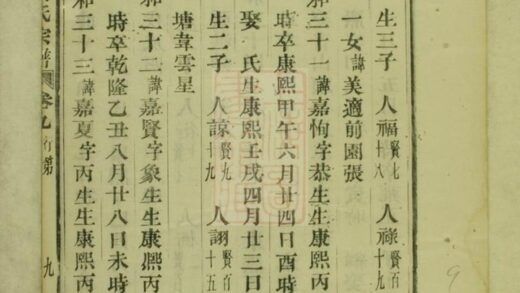 生三子 人福賢七十八 人祿賢百十九
一女諱美適前園張
三十一諱嘉恂字恭生生康熙丙
時卒康熙甲午六月廿四日酉時
娶 氏生康熙壬戌四月廿三日
生二子 人諒賢九十九 人詡賢百十五
塘韋雲星
三十二諱嘉賢字象生生康熙丙
時卒乾隆乙丑八月廿八日未時
三十三諱嘉夏字丙生生康熙丙
氏宗譜 卷九 行第 九
9